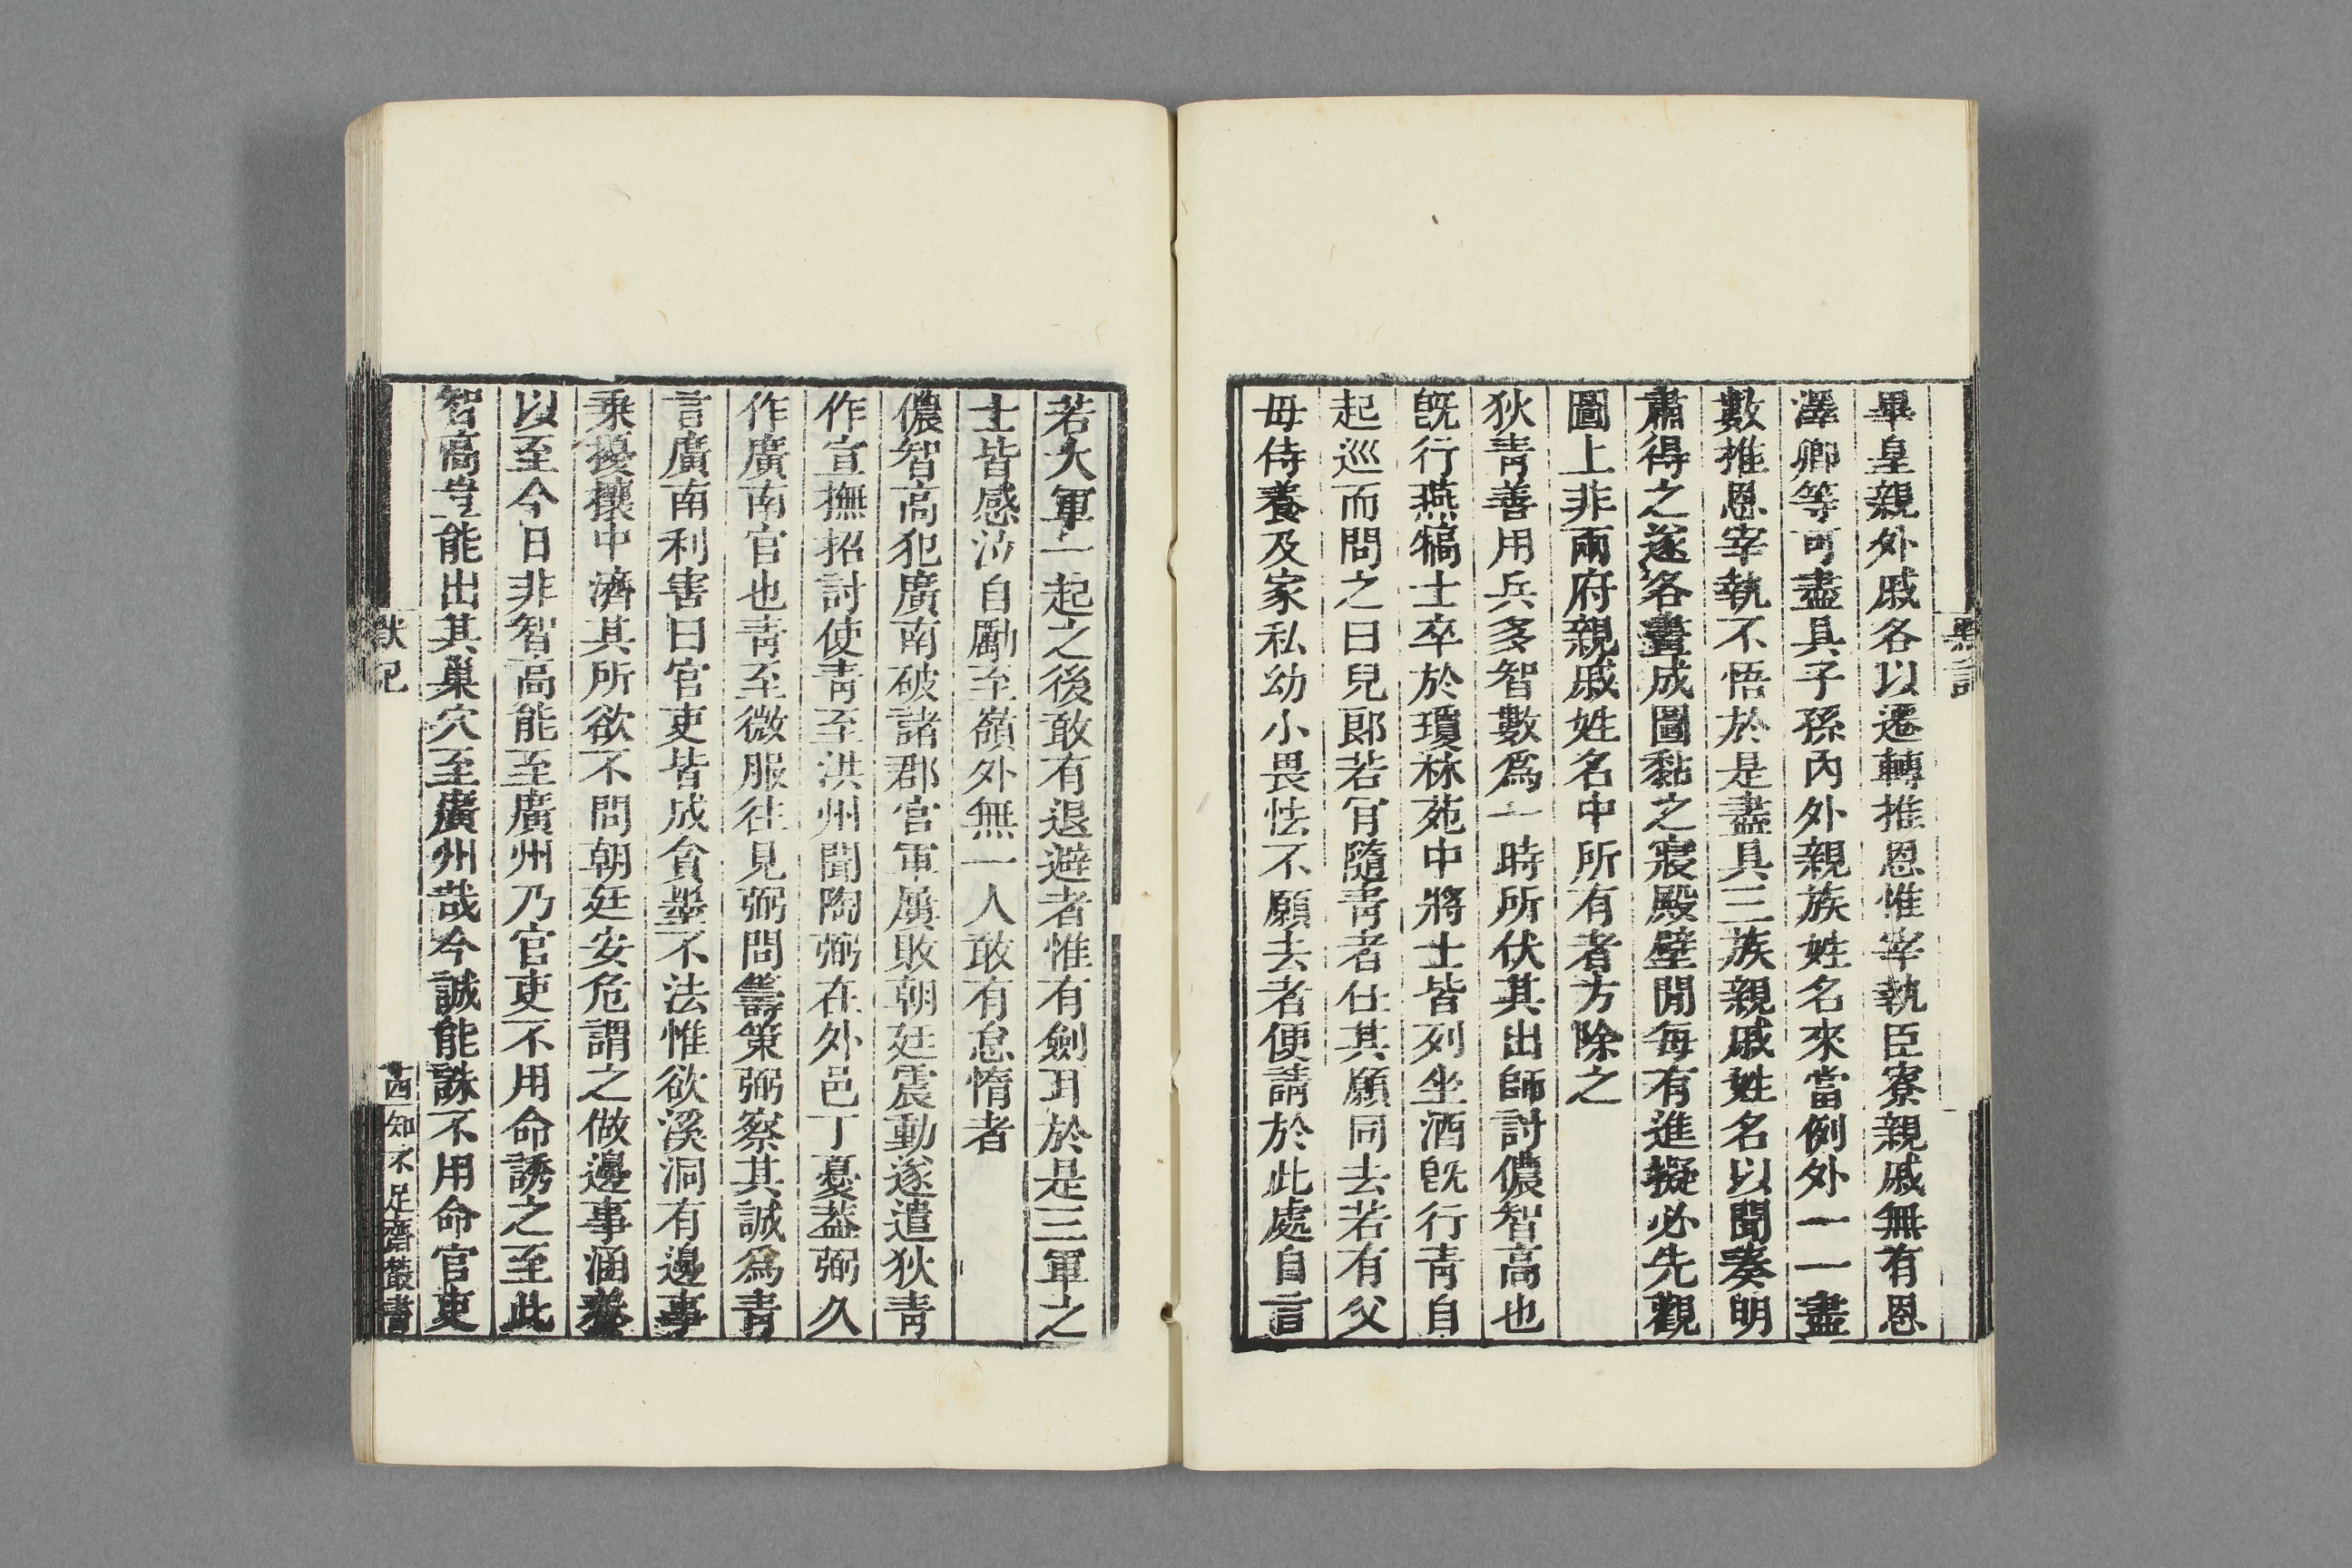 默記
畢皇親外戚各以遷轉推恩惟宰執臣寮親戚無有恩
澤卿等可盡具子孫內外親族姓名來當例外一一盡
數推恩宰執不悟於是盡具三族親戚姓名以聞奏明
肅得之遂各畫成圖黏之寢殿壁閒每有進擬必先觀
圖上非兩府親戚姓名中所有者方除之
狄靑善用兵多智數爲一時所伏其出師討儂智高也
旣行燕犒士卒於瓊林苑中將士皆列坐酒旣行靑自
起巡而問之曰兒郞若肎隨靑者任其願同去若有父
母侍養及家私幼小畏怯不願去者便請於此處自言
若大軍一起之後敢有退避者惟有劍耳於是三軍之
士皆感泣自勵至嶺外無一人敢有怠惰者
儂智高犯廣南破諸郡官軍屢敗朝廷震動遂遣狄靑
作宣撫招討使靑至洪州聞陶弼在外邑丁憂葢弼久
作廣南官也靑至微服往見弼問籌策弼察其誠爲靑
言廣南利害曰官吏皆成貪墨不法惟欲溪洞有邊事
乘擾攘中濟其所欲不問朝廷安危謂之做邊事涵養
以至今日非智高能至廣州乃官吏不用命誘之至此
智高豈能出其巢穴至廣州哉今誠能誅不用命官吏
默記
知不足齋叢書